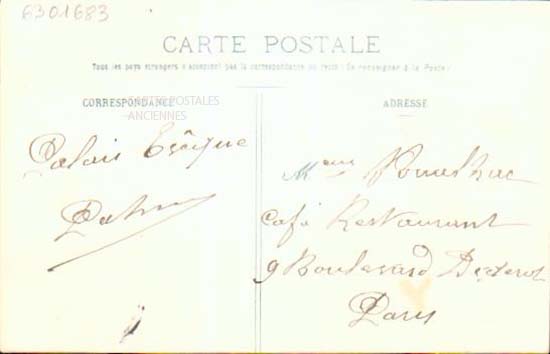 6301683
CARTE POSTALE
Tous les pays étrangers n'acceptent pas la correspondance au recto (Se renseigner à la Poste)
CORRESPONDANCE
ADRESSE
CARTE POSTALES
ANCIENNES
Palais
café Restaurant
9 Boulevard Diderot
Paris